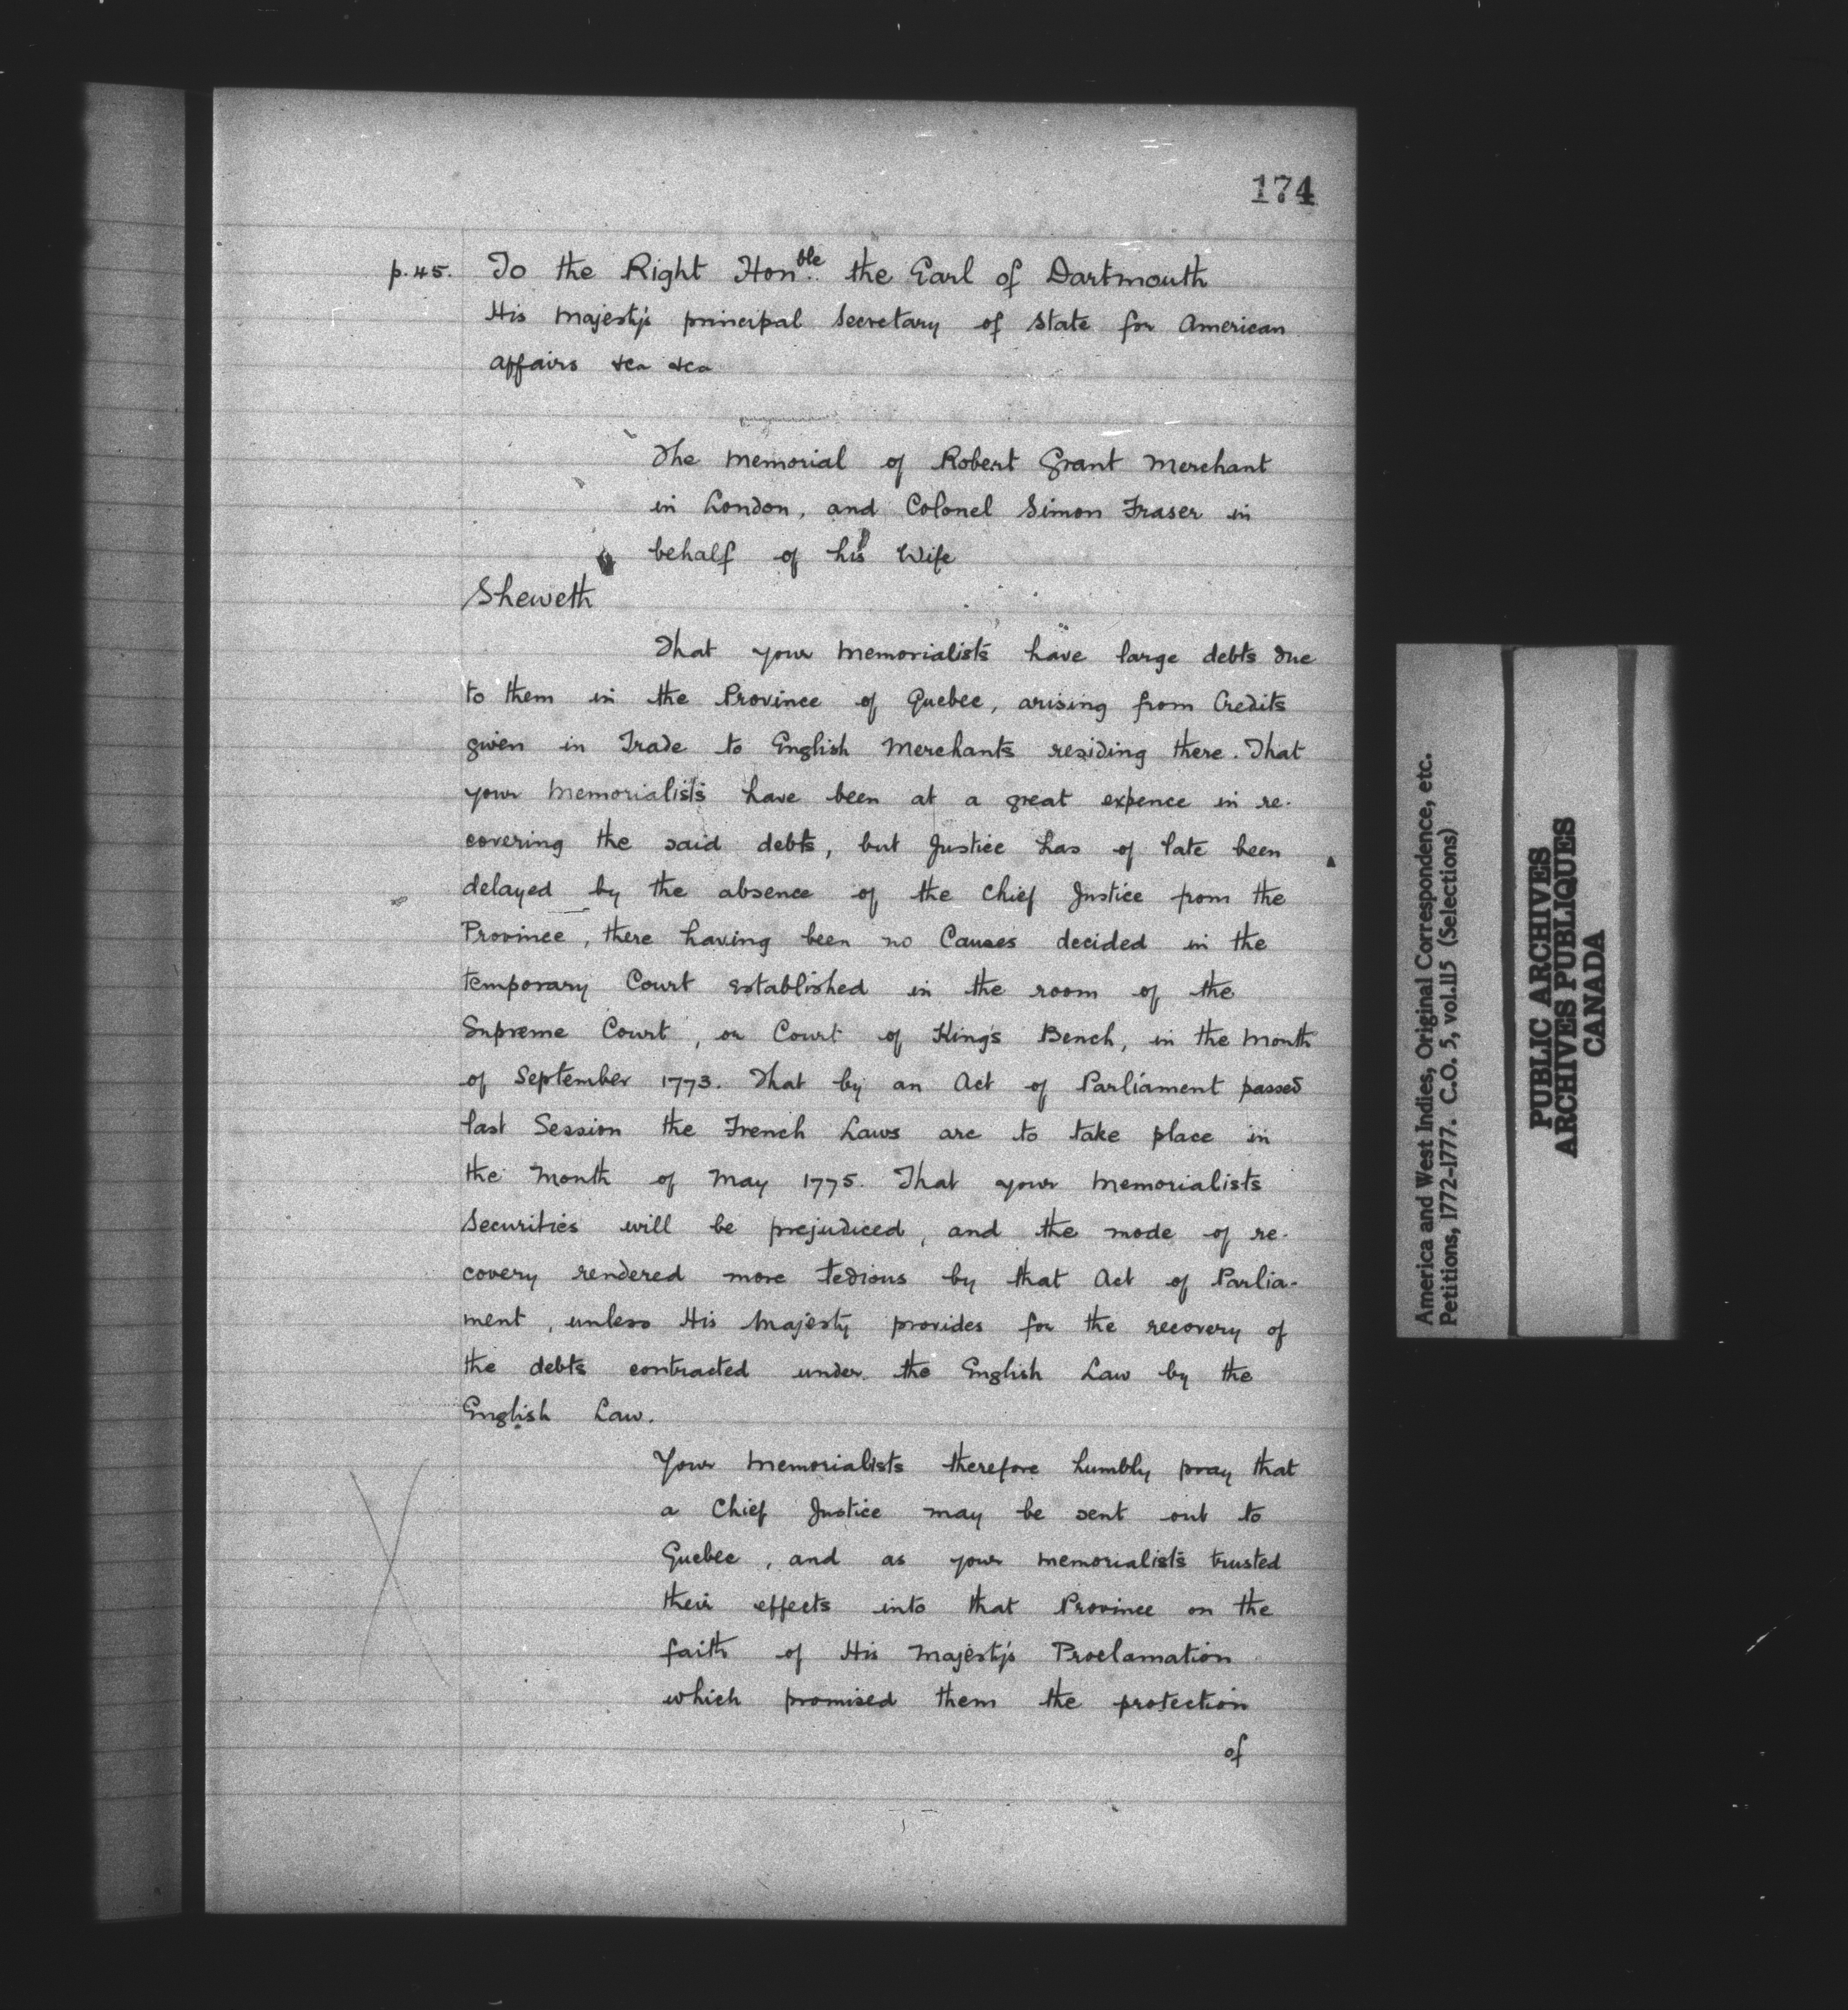 174
p. 45. To the Right Honble. the Earl of Dartmouth
His Majesty's principal Secretary of State for American
affairs &ca &ca
The Memorial of Robert Grant Merchant
in London, and Colonel Simon Fraser in
behalf of his Wife
Sheweth
That your Memorialists have large debts due
to them in the Province of Quebec, arising from Credits
given in Trade to English Merchants residing there. That
your Memorialists have been at a great expence in re-
covering the said debts, but Justice has of late been
delayed by the absence of the Chief Justice from the
Province, there having been no Causes decided in the
temporary Court established in the room of the
Supreme Court, or Court of King's Bench, in the Month
of September 1773. That by an Act of Parliament passed
last Session the French Laws are to take place in
the Month of May 1775. That your Memorialists
Securities will be prejudiced, and the mode of re-
covery rendered more tedious by that Act of Parlia-
ment, unless His Majesty provides for the recovery of
the debts contracted under the English Law by the
English Law.
Your Memorialists therefore humbly pray that
a Chief Justice may be sent out to
Quebec, and as your Memorialists trusted
their effects into that Province on the
faith of His Majesty's Proclamation
which promised them the protection
of
America and West Indies, Original Correspondence, etc.
Petitions, 1772-1777. C.O. 5, vol.115 (Selections)
PUBLIC ARCHIVES
ARCHIVES PUBLIQUES
CANADA